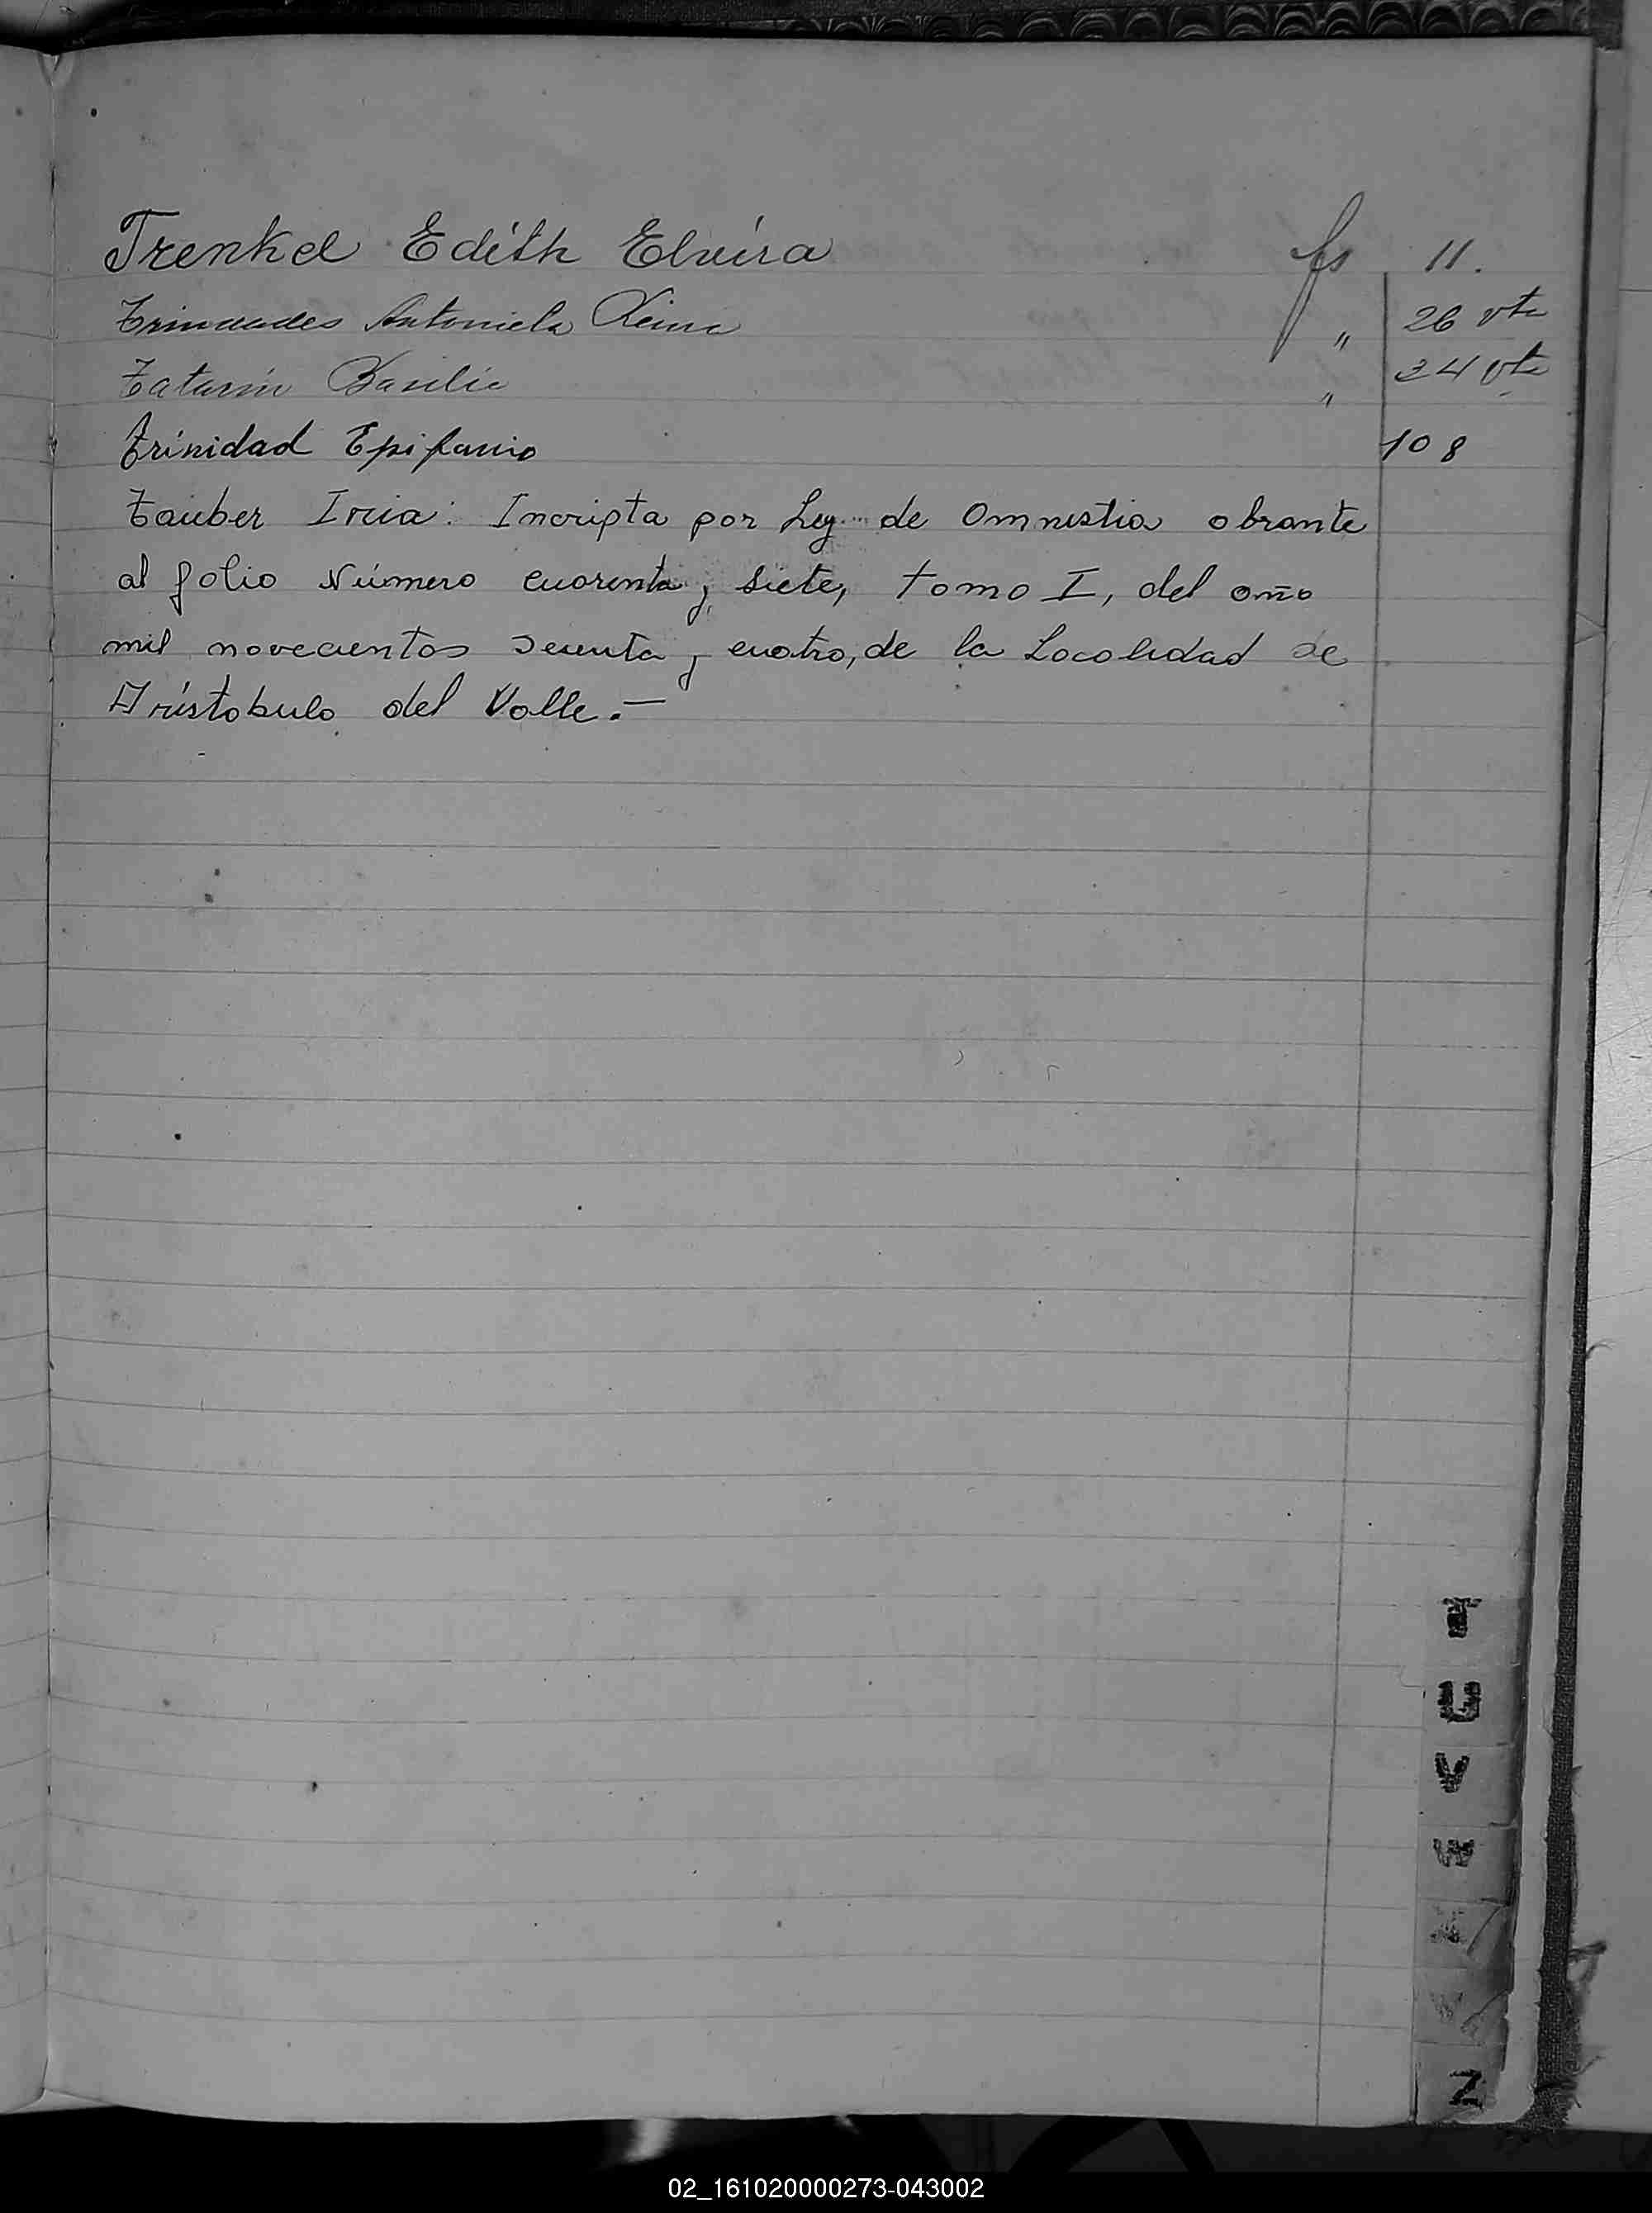 Trenkel Edith Elvira fs 11.
Antoniela Reina " 26 vta
Tatarin Basilio " 34 vta
Trinidad Epifanio 108
Tauber Iria: Incripta por Ley de Omnistia obrante
al folio Número cuarenta y siete, tomo I, del año
mil novecientos y cuatro, de la Localidad de
Aristobulo del Valle.—
T
U
V
W
Z
02_161020000273-043002